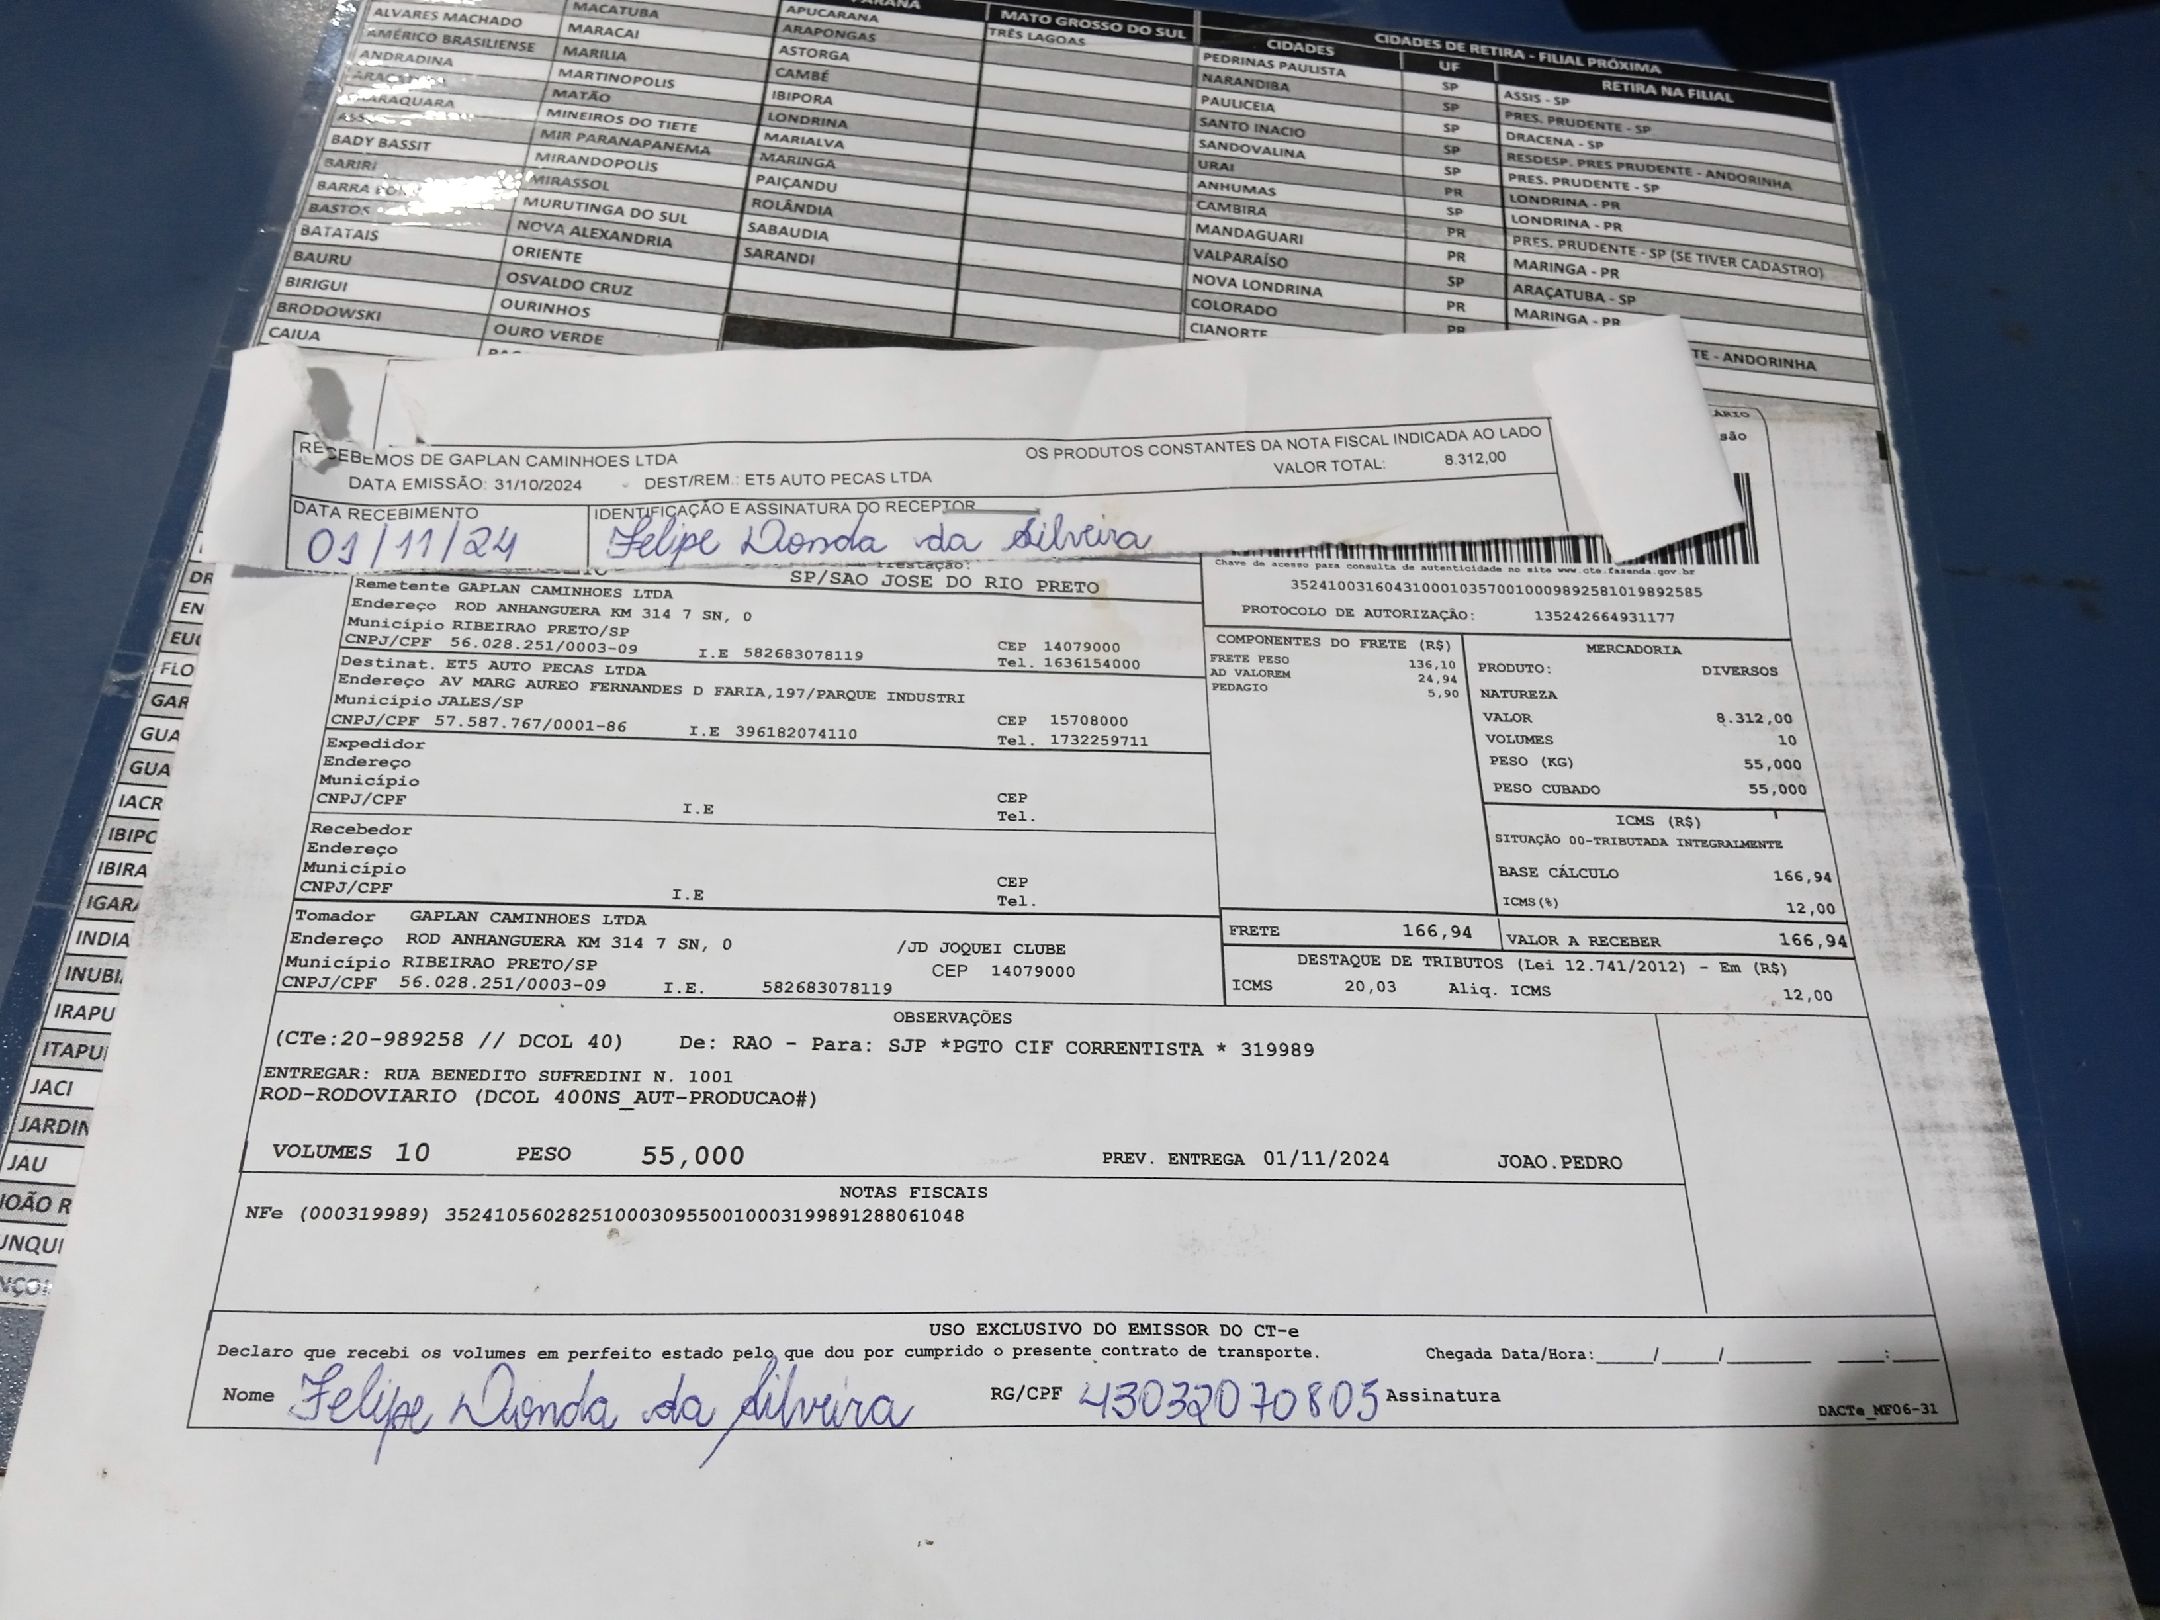 PARANÁ
MATO GROSSO DO SUL
CIDADES DE RETIRA - FILIAL PRÓXIMA
CIDADES
UF
RETIRA NA FILIAL
ALVARES MACHADO
AMÉRICO BRASILIENSE
ANDRADINA
ARARAQUARA
BADY BASSIT
BARIRI
BARRA
BASTOS
BATATAIS
BAURU
BIRIGUI
BRODOWSKI
CAIUA
MACATUBA
MARACAI
MARILIA
MARTINOPOLIS
MATÃO
MINEIROS DO TIETE
MIR PARANAPANEMA
MIRANDOPOLIS
MIRASSOL
MURUTINGA DO SUL
NOVA ALEXANDRIA
ORIENTE
OSVALDO CRUZ
OURINHOS
OURO VERDE
APUCARANA
ARAPONGAS
ASTORGA
CAMBÉ
IBIPORA
LONDRINA
MARIALVA
MARINGA
PAIÇANDU
ROLÂNDIA
SABAUDIA
SARANDI
TRÊS LAGOAS
PEDRINAS PAULISTA SP ASSIS - SP
NARANDIBA SP PRES. PRUDENTE - SP
PAULICEIA SP DRACENA - SP
SANTO INACIO SP RESDESP. PRES PRUDENTE - ANDORINHA
SANDOVALINA SP PRES. PRUDENTE - SP
URAI PR LONDRINA - PR
ANHUMAS SP LONDRINA - PR
CAMBIRA PR PRES. PRUDENTE - SP (SE TIVER CADASTRO)
MANDAGUARI PR MARINGA - PR
VALPARAÍSO SP ARAÇATUBA - SP
NOVA LONDRINA PR MARINGA - PR
COLORADO PR
CIANORTE
TE - ANDORINHA
RECEBEMOS DE GAPLAN CAMINHOES LTDA OS PRODUTOS CONSTANTES DA NOTA FISCAL INDICADA AO LADO
DATA EMISSÃO: 31/10/2024 DEST/REM.: ET5 AUTO PECAS LTDA VALOR TOTAL: 8.312,00
DATA RECEBIMENTO IDENTIFICAÇÃO E ASSINATURA DO RECEPTOR
01/11/24 Felipe Donda da Silveira
SP/SAO JOSE DO RIO PRETO
Chave de acesso para consulta de autenticidade no site www.cte.fazenda.gov.br
35241003160431000103570010009892581019892585
PROTOCOLO DE AUTORIZAÇÃO: 135242664931177
Remetente GAPLAN CAMINHOES LTDA
Endereço ROD ANHANGUERA KM 314 7 SN, 0
Município RIBEIRAO PRETO/SP CEP 14079000
CNPJ/CPF 56.028.251/0003-09 I.E 582683078119 Tel. 1636154000
Destinat. ET5 AUTO PECAS LTDA
Endereço AV MARG AUREO FERNANDES D FARIA,197/PARQUE INDUSTRI
Município JALES/SP CEP 15708000
CNPJ/CPF 57.587.767/0001-86 I.E 396182074110 Tel. 1732259711
Expedidor
Endereço
Município CEP
CNPJ/CPF I.E Tel.
Recebedor
Endereço
Município CEP
CNPJ/CPF I.E Tel.
Tomador GAPLAN CAMINHOES LTDA
Endereço ROD ANHANGUERA KM 314 7 SN, 0 /JD JOQUEI CLUBE
Município RIBEIRAO PRETO/SP CEP 14079000
CNPJ/CPF 56.028.251/0003-09 I.E. 582683078119
COMPONENTES DO FRETE (R$)
FRETE PESO 136,10
AD VALOREM 24,94
PEDAGIO 5,90
MERCADORIA
PRODUTO: DIVERSOS
NATUREZA
VALOR 8.312,00
VOLUMES 10
PESO (KG) 55,000
PESO CUBADO 55,000
ICMS (R$)
SITUAÇÃO 00-TRIBUTADA INTEGRALMENTE
BASE CÁLCULO 166,94
ICMS(%) 12,00
FRETE 166,94 VALOR A RECEBER 166,94
DESTAQUE DE TRIBUTOS (Lei 12.741/2012) - Em (R$)
ICMS 20,03 Aliq. ICMS 12,00
OBSERVAÇÕES
(CTe:20-989258 // DCOL 40) De: RAO - Para: SJP *PGTO CIF CORRENTISTA * 319989
ENTREGAR: RUA BENEDITO SUFREDINI N. 1001
ROD-RODOVIARIO (DCOL 400NS_AUT-PRODUCAO#)
VOLUMES 10 PESO 55,000 PREV. ENTREGA 01/11/2024 JOAO.PEDRO
NOTAS FISCAIS
NFe (000319989) 35241056028251000309550010003199891288061048
USO EXCLUSIVO DO EMISSOR DO CT-e
Declaro que recebi os volumes em perfeito estado pelo que dou por cumprido o presente contrato de transporte. Chegada Data/Hora:____/____/________ ____:____
Nome Felipe Donda da Silveira RG/CPF 43032070805 Assinatura
DACTe_MF06-31
DR
EN
EUC
FLO
GAR
GUA
GUA
IACR
IBIPO
IBIRA
IGARA
INDIA
INUBI
IRAPU
ITAPUI
JACI
JARDIN
JAU
JOÃO R
JUNQUI